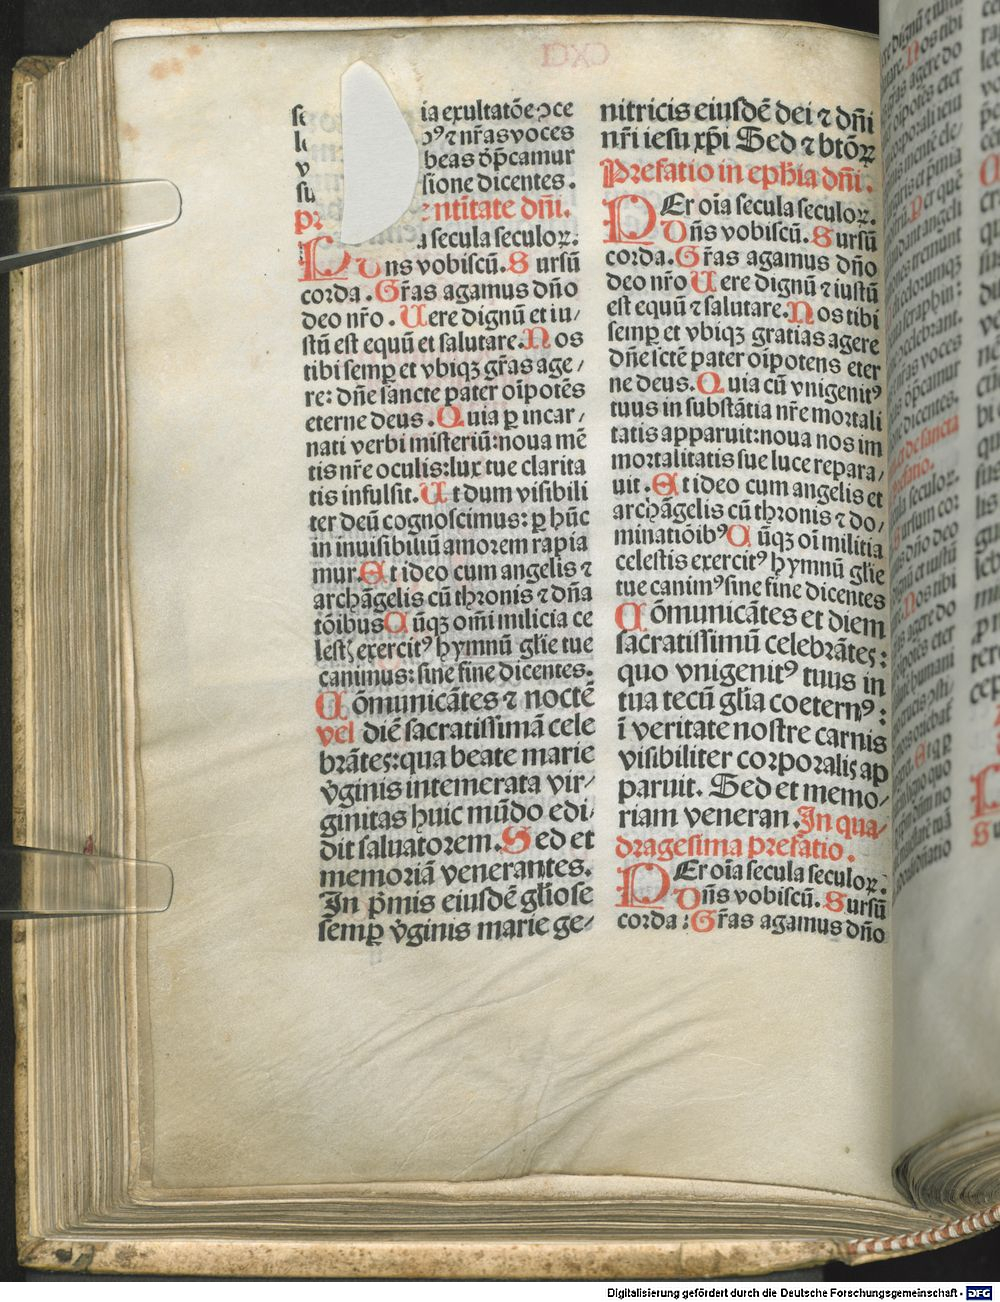 ia exultatōe ꝯce
nr̃as voces
beas dep̃camur
sione dicentes.
ntītate dñi.
a secula seculoꝝ.
Dns vobiscū. Sursū
corda. Gr̃as agamus dño
deo nr̃o. Uere dignū et iu/
stū est equū et salutare. Nos
tibi semꝑ et vbiqꝫ gr̃as age/
re: dñe sancte pater oīpotēs
eterne deus. Quia ꝑ incar/
nati verbi misteriū: noua mē
tis nr̃e oculis: lux tue clarita
tis infulsit. Ut dum visibili
ter deū cognoscimus: ꝑ hūc
in inuisibiliū amorem rapia
mur. Et ideo cum angelis ⁊
archāgelis cū thronis ⁊ dña
tōibus Cūqꝫ om̄i milicia ce
lestꝭ exercitꝰ hymnū gl̃ie tue
canimus: sine fine dicentes.
Cōmunicātes ⁊ noctē
vel diē sacratissimā cele
brātes: qua beate marie
v̄ginis intemerata vir/
ginitas huic mūdo edi/
dit saluatorem. Sed et
memoriā venerantes.
In p̄mis eiusdē gl̃iose
semꝑ v̄ginis marie ge/
nitricis eiusdē dei ⁊ dñi
nr̃i iesu xp̄i Sed ⁊ btōꝝ
Prefatio in eph̄ia dñi.
PEr oīa secula seculoꝝ.
Dñs vobiscū. Sursū
corda. Gr̃as agamus dño
deo nr̃o Uere dignū ⁊ iustū
est equū ⁊ salutare. Nos tibi
semꝑ et vbiqꝫ gratias agere
dñe sctē pater oīpotens eter
ne deus. Quia cū vnigenitꝰ
tuus in substātia nr̃e mortali
tatis apparuit: noua nos im
mortalitatis sue luce repara/
uit. Et ideo cum angelis et
archāgelis cū thronis ⁊ do/
minatiōibꝰ Cūqꝫ oī militia
celestis exercitꝰ hymnū gl̃ie
tue canimꝰ sine fine dicentes
Cōmunicātes et diem
sacratissimū celebrātes:
quo vnigenitꝰ tuus in
tua tecū gl̃ia coeternꝰ:
ī veritate nostre carnis
visibiliter corporalis ap
paruit. Sed et memo/
riam veneran. In qua/
dragesima prefatio.
PEr oīa secula seculoꝝ.
Dñs vobiscū. Sursū
corda: Gr̃as agamus dño
Digitalisierung gefördert durch die Deutsche Forschungsgemeinschaft - DFG